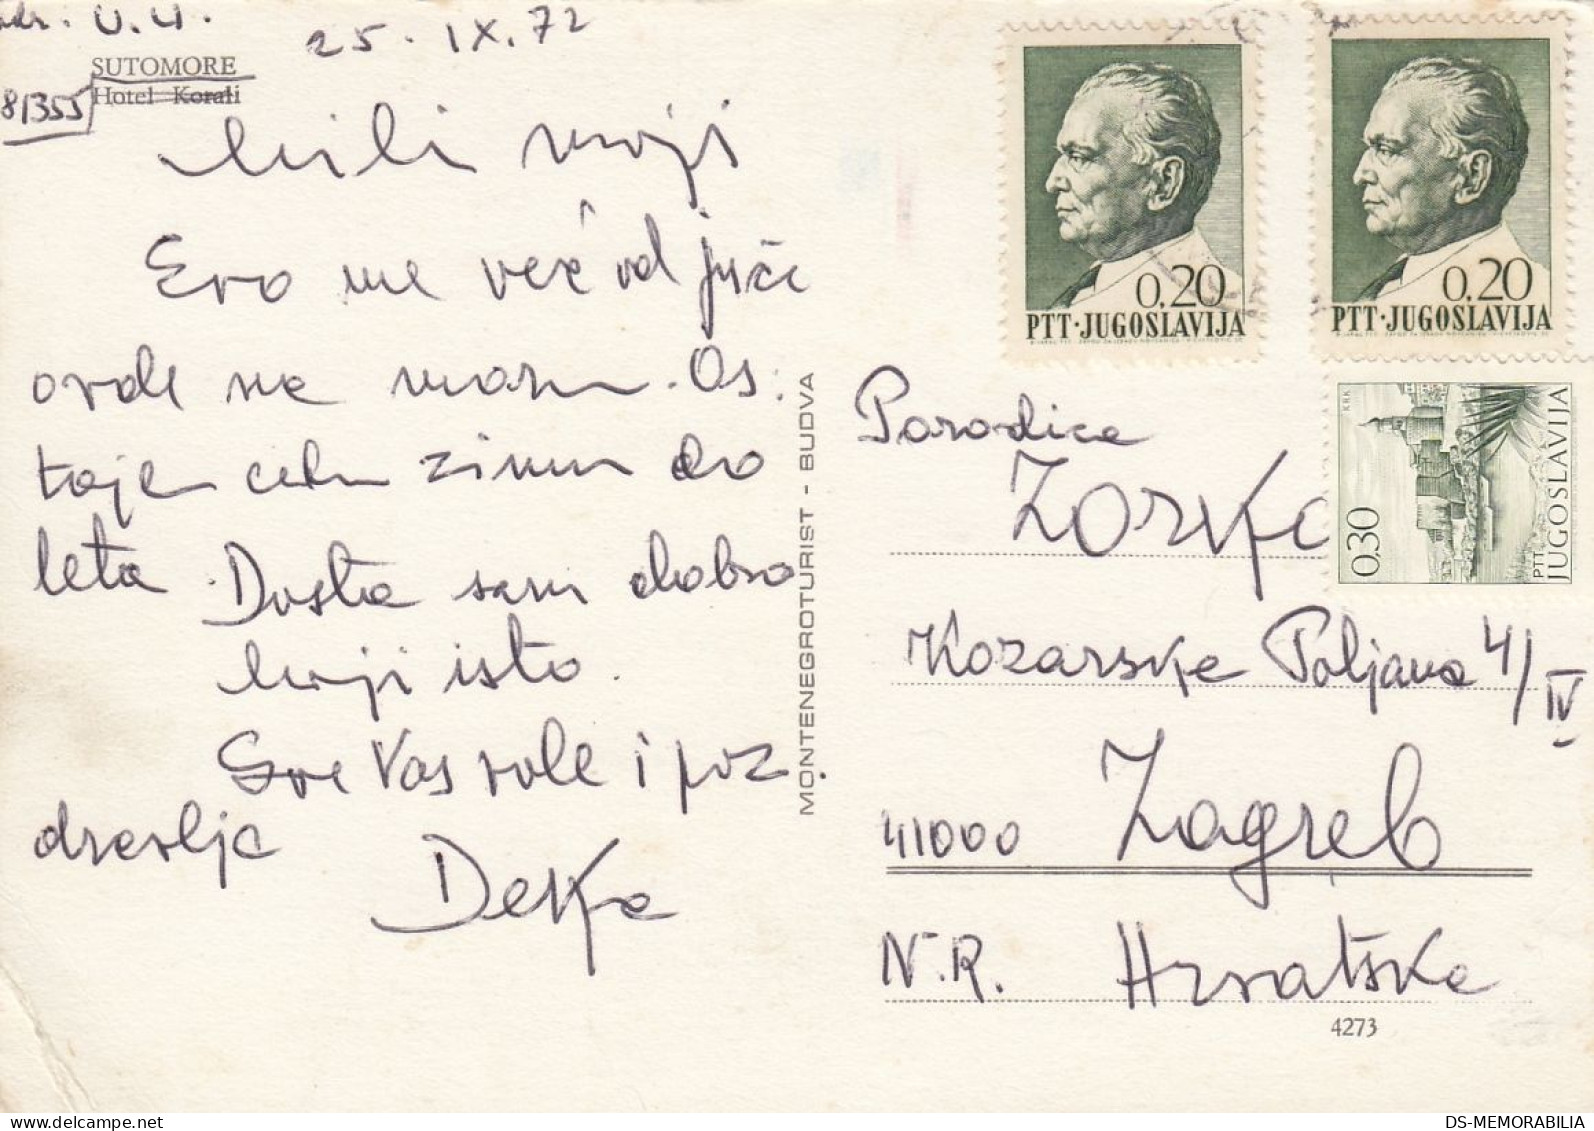 adr. U.U.
25. IX. 72
SUTOMORE
Hotel Korali
81355
Mili moji
Evo me već od juče
ovde na moru. Os.
tajem celu zimu do
leta. Dosta sam dobro
moji isto.
Sve Vas vole i poz
dravlja
Deka
MONTENEGROTURIST - BUDVA
0,20
PTT·JUGOSLAVIJA
0,20
PTT·JUGOSLAVIJA
KRK
0,30
PTT
JUGOSLAVIJA
Porodica
Zorko
Kozarske Poljana 4/IV
41000 Zagreb
N.R. Hrvatske
4273
DS-MEMORABILIA